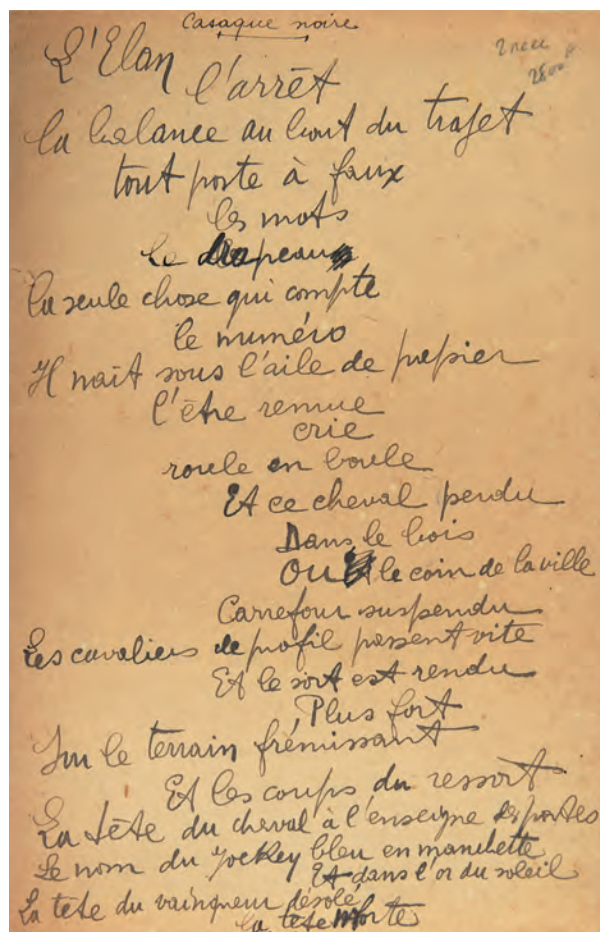 Casaque noire
L'Elan
l'arrêt
la balance au bout du trajet
tout porte à faux
les mots
le drapeau
la seule chose qui compte
le numéro
Il naît sous l'aile de papier
l'être remue
crie
roule en boule
Et ce cheval perdu
Dans le bois
Ou le coin de la ville
Carrefour suspendu
Les cavaliers de profil passent vite
Et le sort est rendu
Plus fort
Sur le terrain frémissant
Et les coups du ressort
La tête du cheval à l'enseigne des portes
Le nom du jockey bleu en manchette
Et dans l'or du soleil
La tete du vainqueur désolé
la tête morte